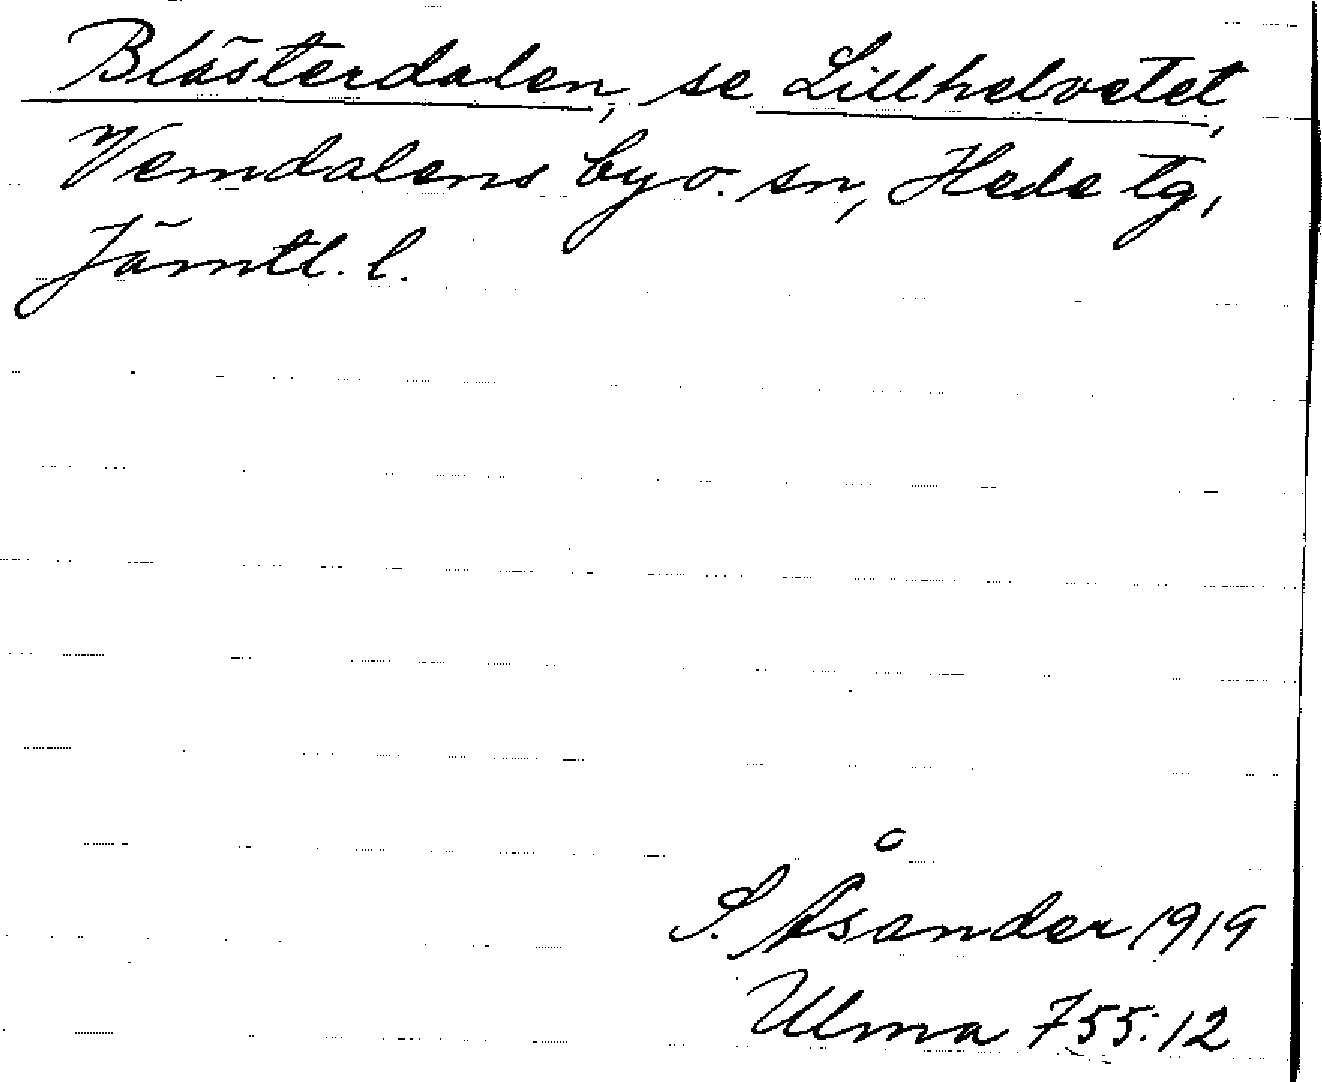 Blästerdalen, se Lillhelvetet,
Vemdalens by o. sn, Hede tg,
Jämtl. l.
S. Åsander 1919
Ulma 755:12